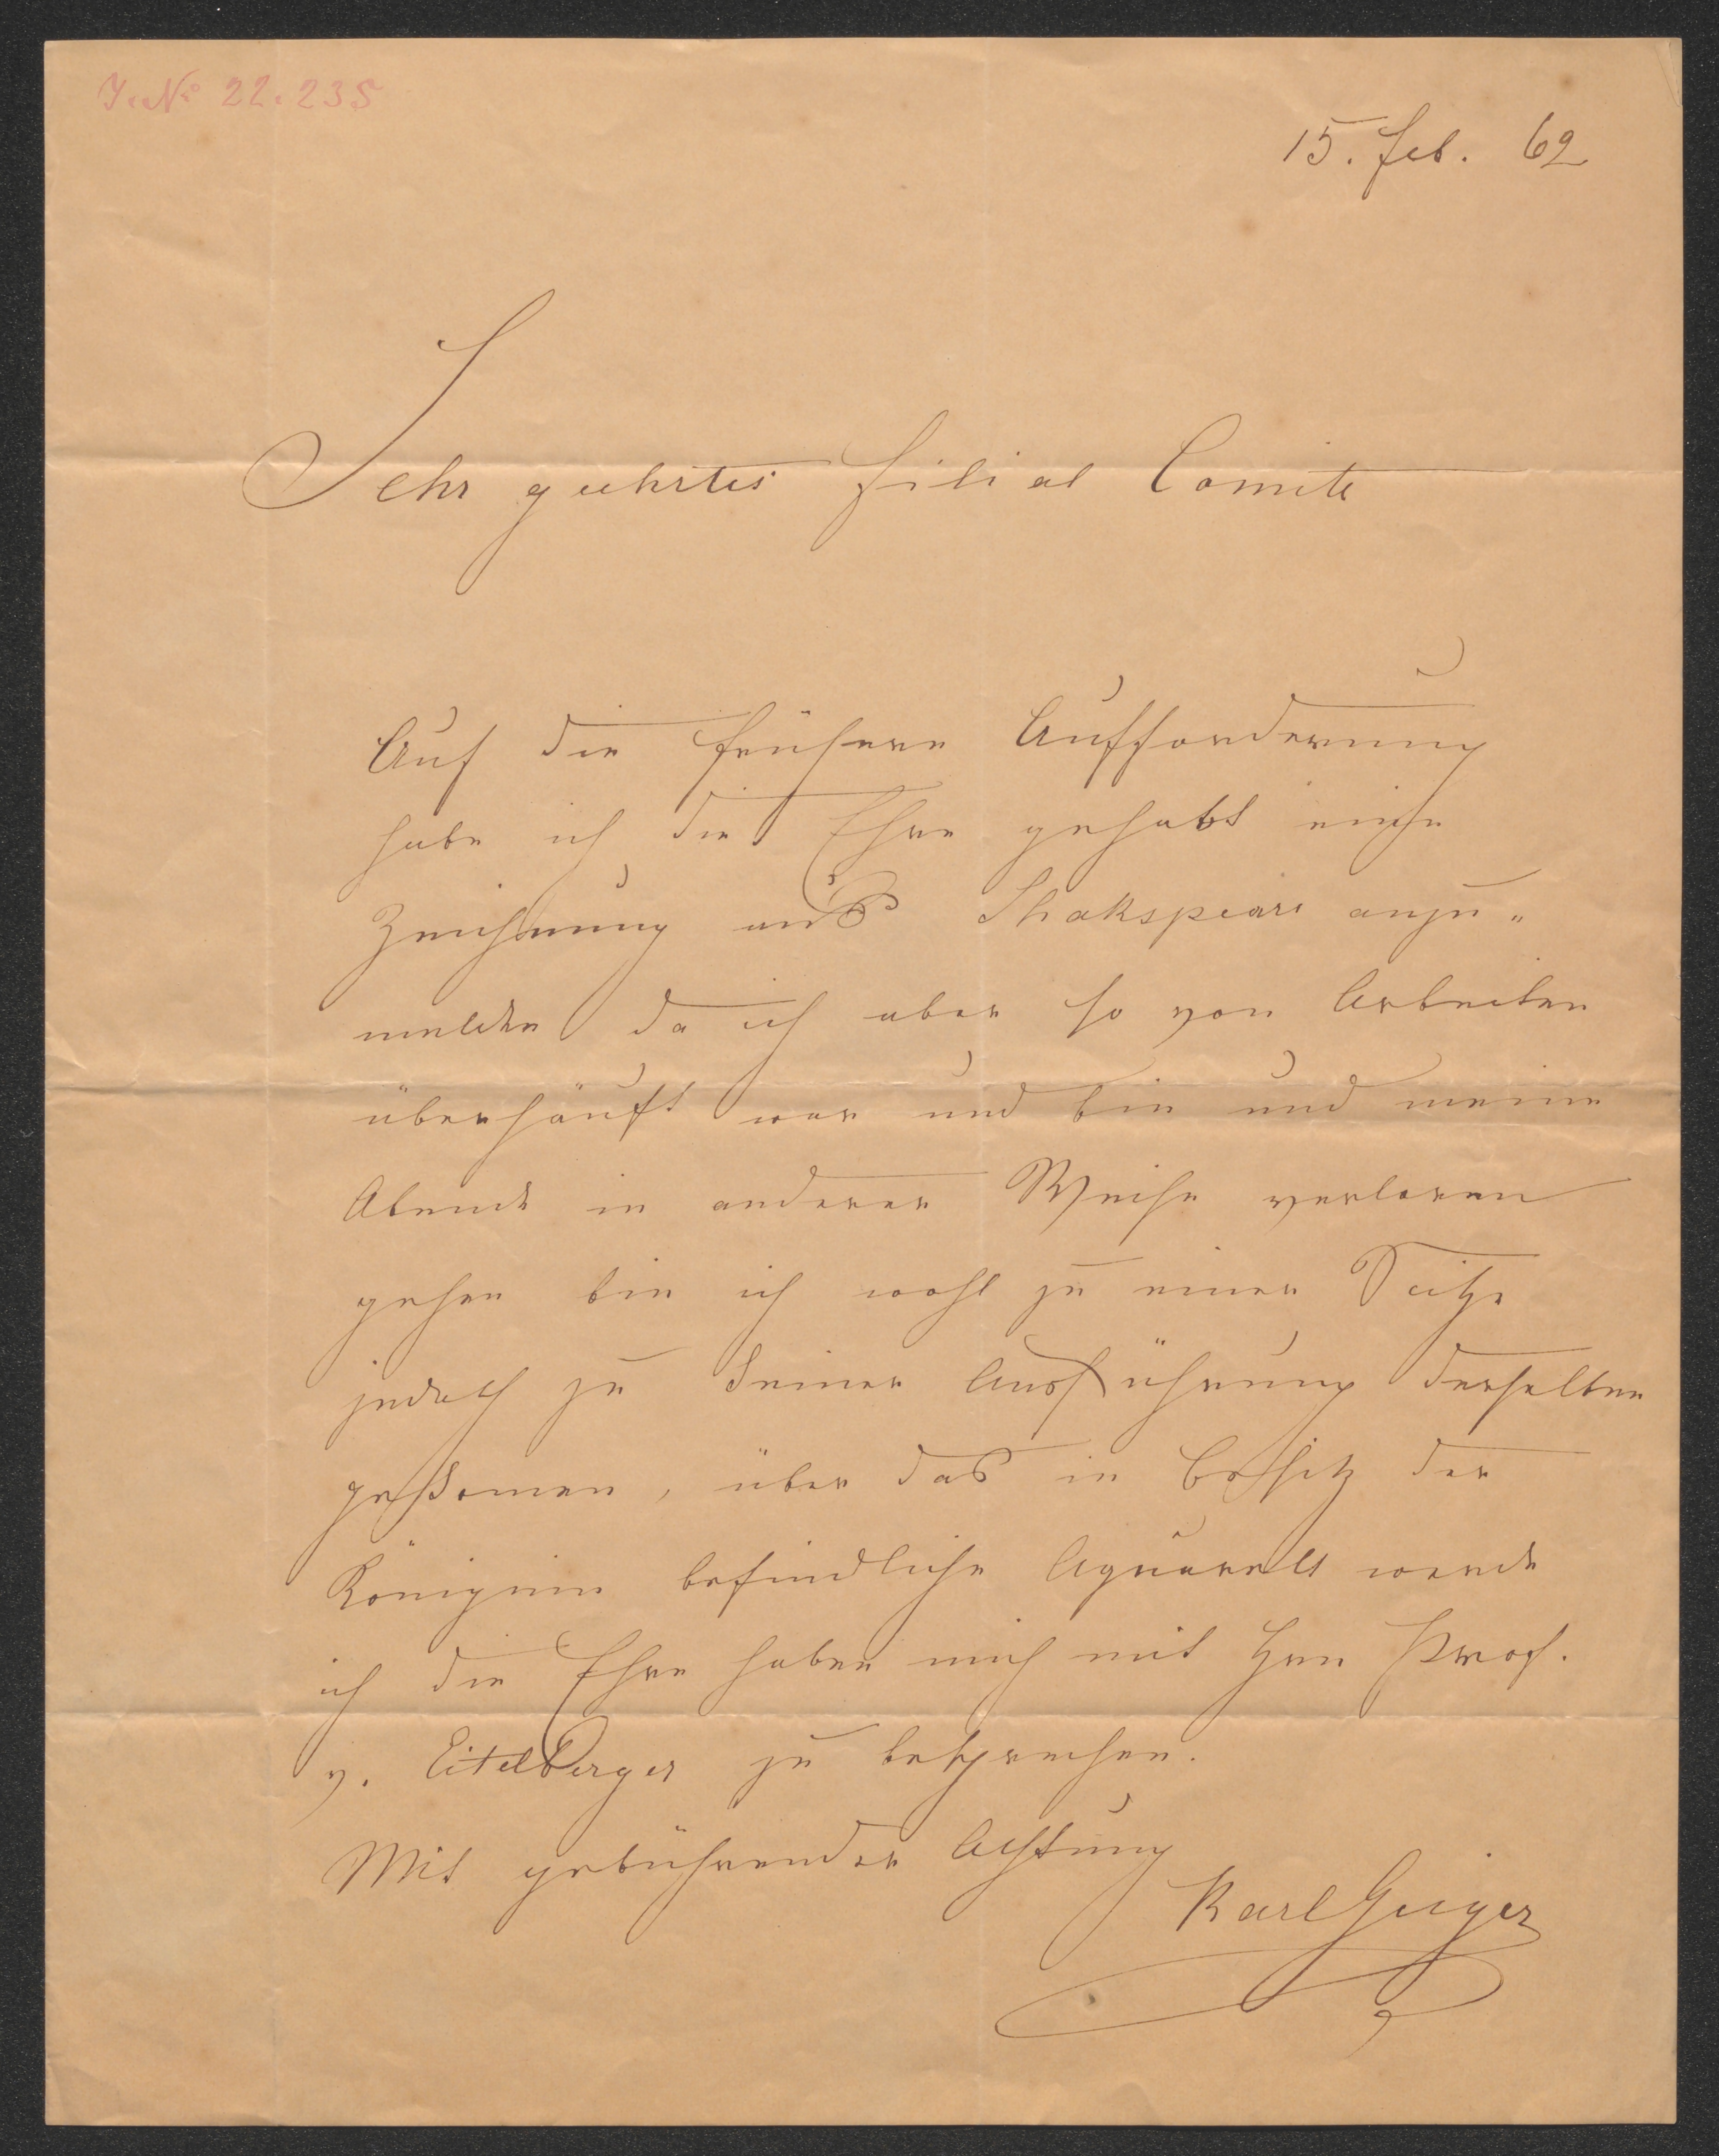 I. N° 22.235
15. Feb. 62
Sehr geehrtes Filial Comite
Auf die frühere Aufforderung
habe ich die Ehre gehabt eine
Zeichnung aus Shakspeare anzu„
melden da ich aber so von Arbeiten
überhäuft war und bin und meine
Abende in anderer Weise verloren
gehen bin ich wohl zu einer
jedoch zu keiner Ausführung derselben
gekomen, über das in Besitz der
Königinn befindliche Aquarell werde
ich die Ehre haben mich mit Hrn Prof.
v. Eitelberger zu besprechen.
Mit gebührender Achtung
Karl Geiger